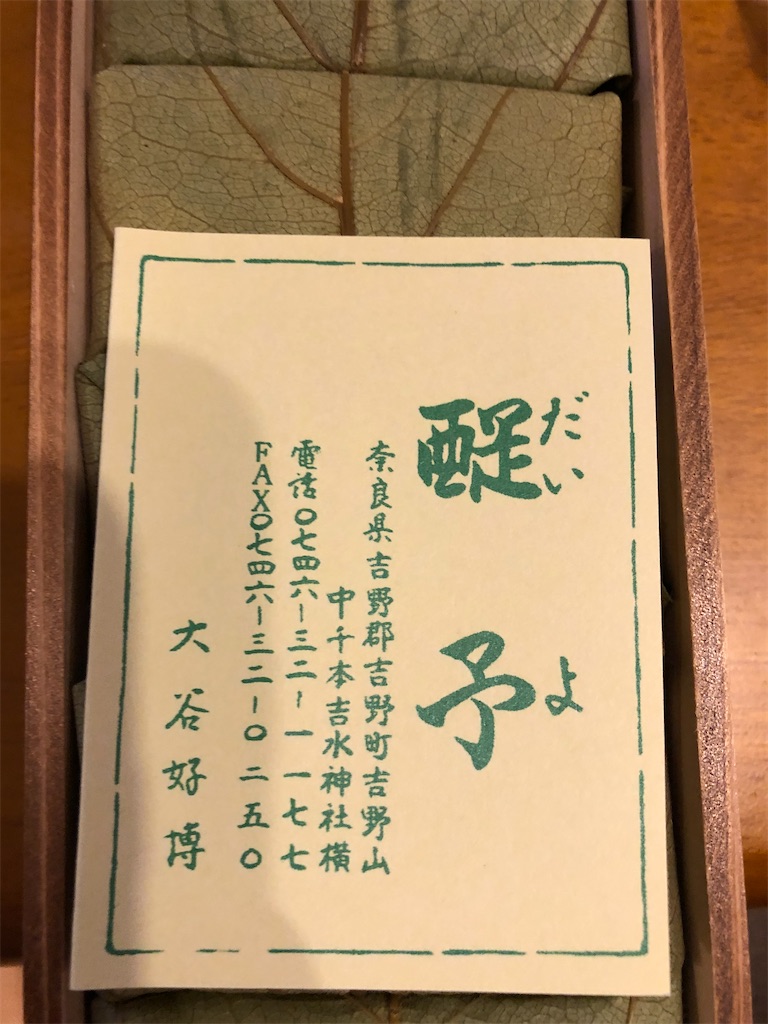 だい
よ
醍予
奈良県吉野郡吉野町吉野山
中千本吉水神社横
電話〇七四六ー三二ー一一七七
FAX〇七四六ー三二ー〇二五〇
大谷好博